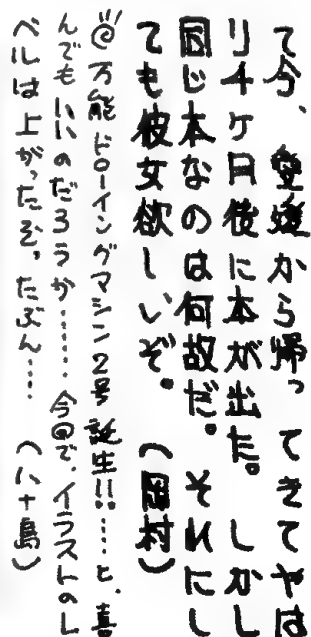 て今、愛媛から帰ってきてやは
り4ケ月後に本が出た。しかし
同じ本なのは何故だ。それにし
ても彼女欲しいぞ。(岡村)
◎万能ドローイングマシン2号誕生!!……と、喜
んでもいいのだろうか……今回で、イラストのレ
ベルは上がったぞっ、たぶん…… (八十島)